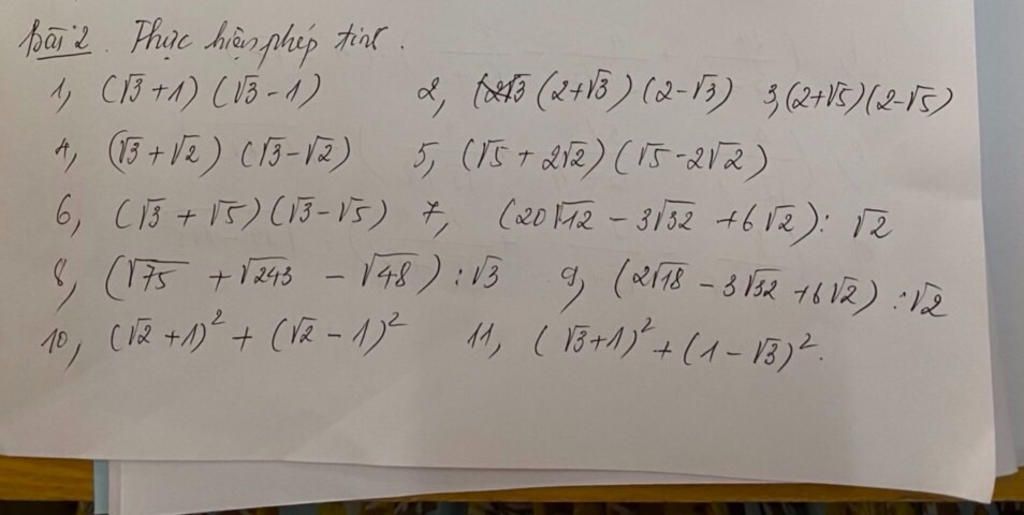 Bài 2. Thực hiện phép tính.
1, (√3 + 1) (√3 - 1) 2, (2+√3) (2-√3) 3, (2+√5) (2-√5)
4, (√3 + √2) (√3 - √2) 5, (√5 + 2√2) (√5 - 2√2)
6, (√3 + √5) (√3 - √5) 7, (20√12 - 3√32 + 6√2) : √2
8, (√75 + √243 - √48) : √3 9, (2√18 - 3√32 + 6√2) : √2
10, (√2 + 1)² + (√2 - 1)² 11, (√3 + 1)² + (1 - √3)².